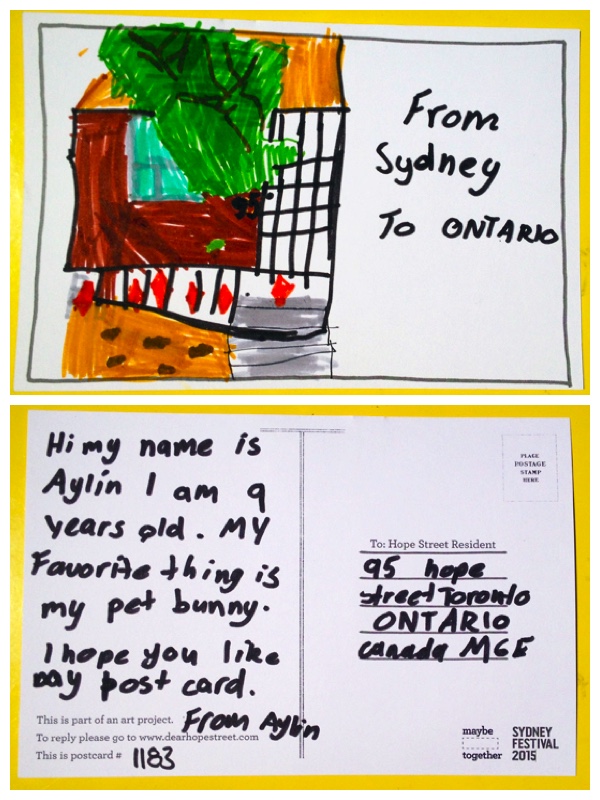 From
Sydney
To ONTARIO
95
Hi my name is
Aylin I am 9
years old. MY
Favorite thing is
my pet bunny.
I hope you like
my post card.
From Aylin
This is part of an art project.
To reply please go to www.dearhopestreet.com
This is postcard # 1183
PLACE
POSTAGE
STAMP
HERE
To: Hope Street Resident
95 hope
street Toronto
ONTARIO
canada M6E
maybe
together
SYDNEY
FESTIVAL
2015